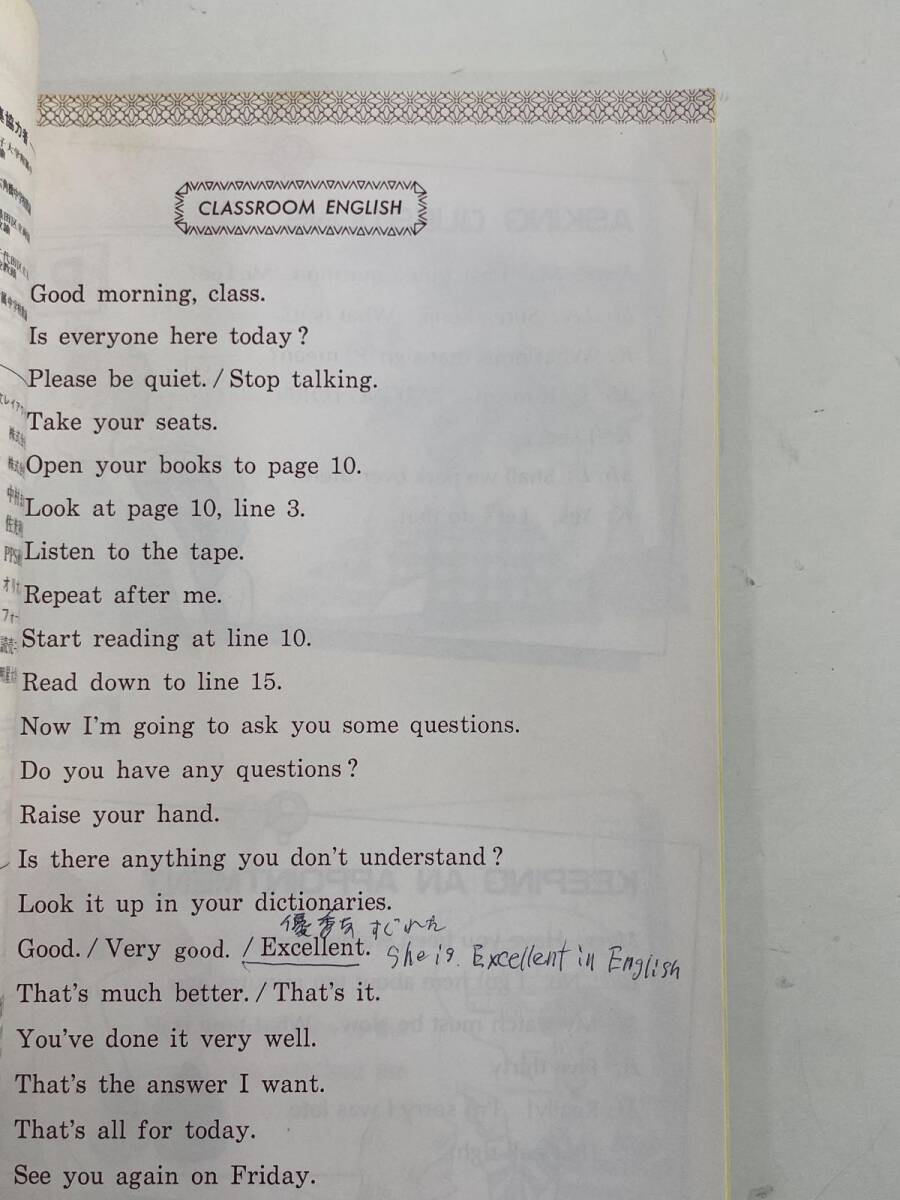 CLASSROOM ENGLISH
Good morning, class.
Is everyone here today?
Please be quiet. / Stop talking.
Take your seats.
Open your books to page 10.
Look at page 10, line 3.
Listen to the tape.
Repeat after me.
Start reading at line 10.
Read down to line 15.
Now I'm going to ask you some questions.
Do you have any questions?
Raise your hand.
Is there anything you don't understand?
Look it up in your dictionaries.
優秀な すぐれた
Good. / Very good. / Excellent. She is. Excellent in English
That's much better. / That's it.
You've done it very well.
That's the answer I want.
That's all for today.
See you again on Friday.